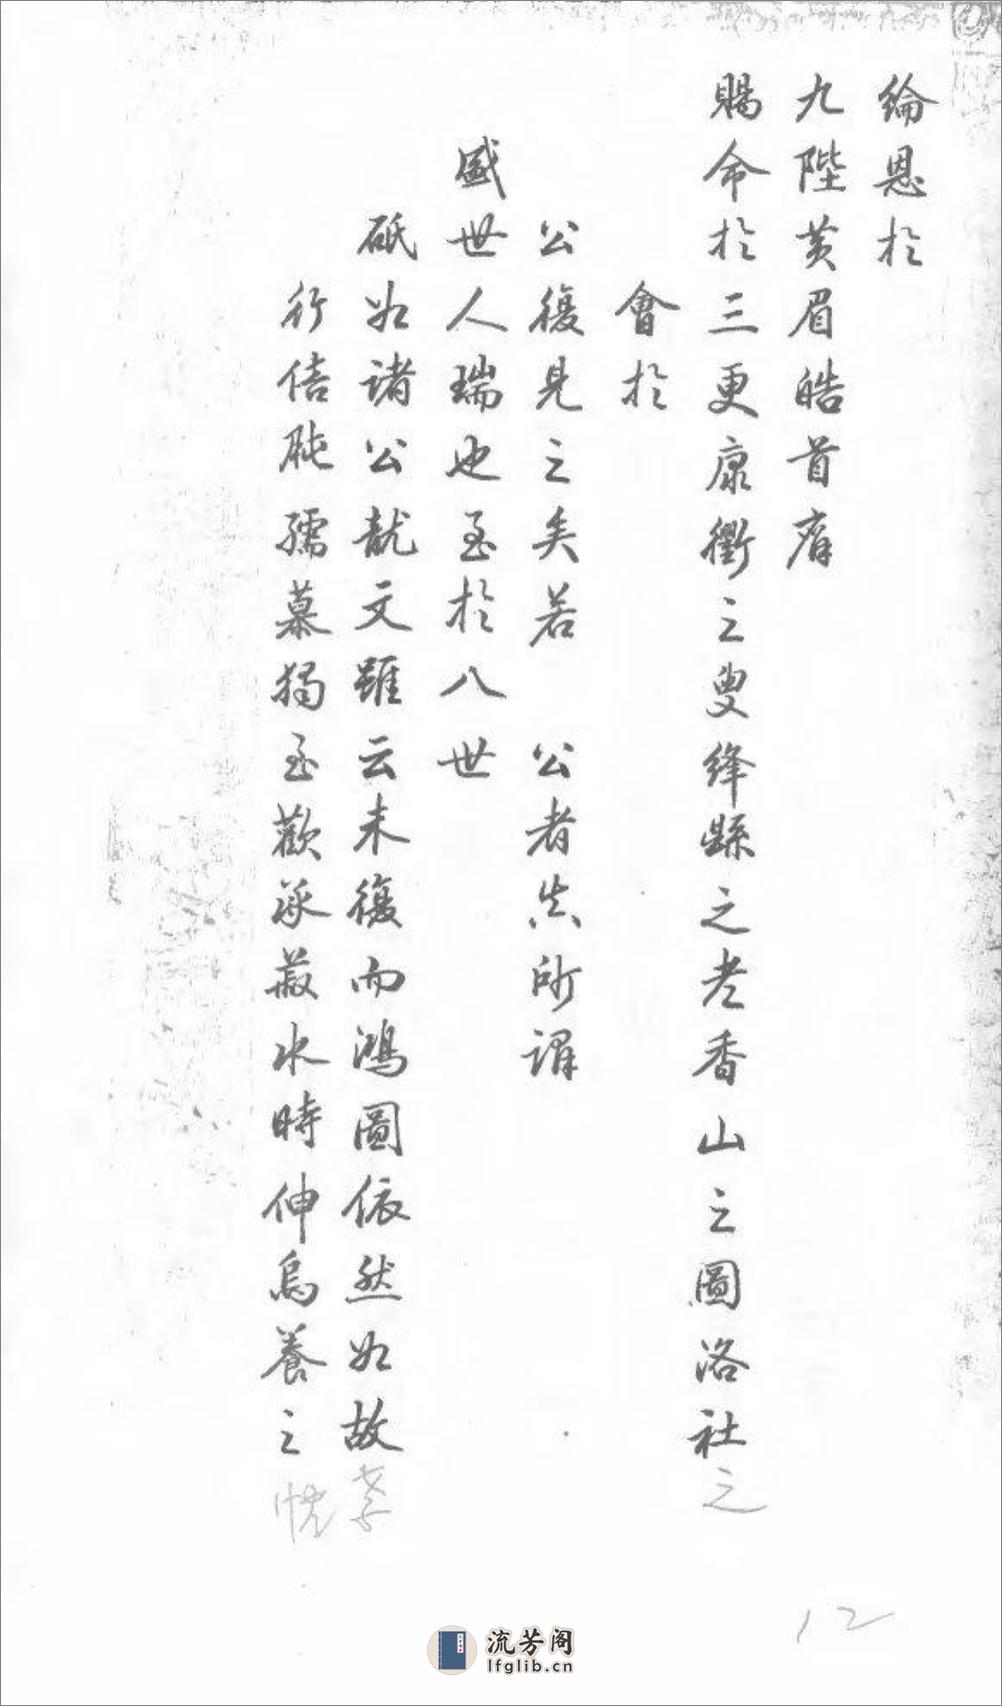 綸恩於
九陛黃眉皓首膺
賜命於三更康衢之叟絳縣之老香山之圖洛社之
會於
公復見之矣若 公者真所謂
盛世人瑞也至於八世
砥如諸公龍文雖云未復而鴻圖依然如故孝
行信肫孺慕獨至歡承菽水時伸烏養之忱
12
流芳阁
lfglib.cn